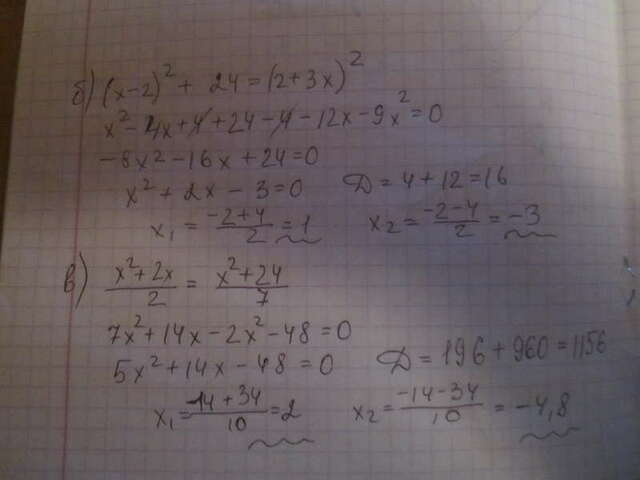 б) (x-2)² + 24 = (2+3x)²
x² - 4x + 4 + 24 - 4 - 12x - 9x² = 0
-8x² - 16x + 24 = 0
x² + 2x - 3 = 0 D = 4 + 12 = 16
x₁ = (-2+4)/2 = 1 x₂ = (-2-4)/2 = -3
в) (x²+2x)/2 = (x²+24)/7
7x² + 14x - 2x² - 48 = 0
5x² + 14x - 48 = 0 D = 196 + 960 = 1156
x₁ = (-14+34)/10 = 2 x₂ = (-14-34)/10 = -4,8